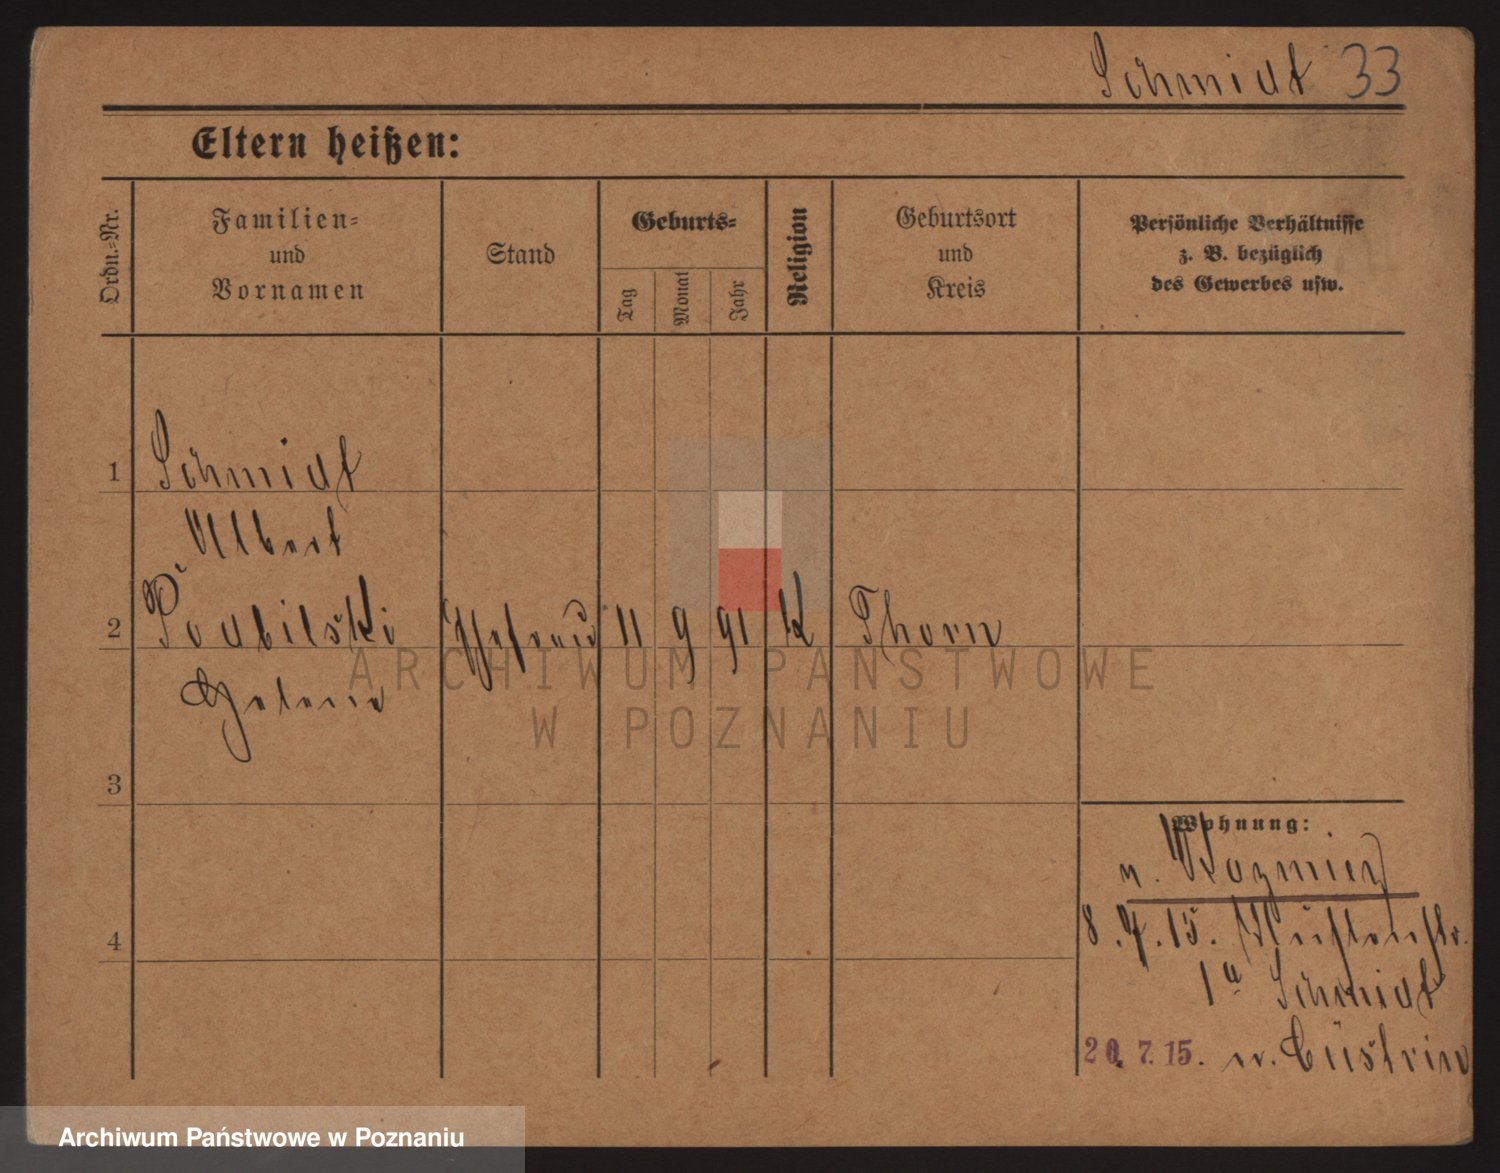 Schmidt 33
Eltern heißen:
Ordn.=Nr.
Familien=
und
Vornamen
Stand
Geburts=
Tag
Monat
Jahr
Religion
Geburtsort
und
Kreis
Persönliche Verhältnisse
z. B. bezüglich
des Gewerbes usw.
1 Schmidt
Albert
2 Podbilski Ehefrau 11 9 91 K Thorn
Helene
3
Wohnung:
v.
4
8.7.15.
1a Schmidt
20.7.15. n. Cüstrin
ARCHIWUM PAŃSTWOWE
W POZNANIU
Archiwum Państwowe w Poznaniu